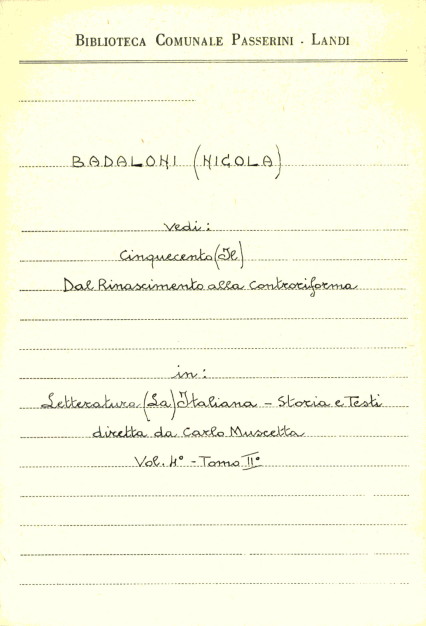 BIBLIOTECA COMUNALE PASSERINI - LANDI
BADALONI (NICOLA)
vedi:
Cinquecento (Il)
Dal Rinascimento alla Controriforma
in:
Letteratura (La) Italiana - Storia e Testi
diretta da Carlo Muscetta
Vol. 4° - Tomo II°